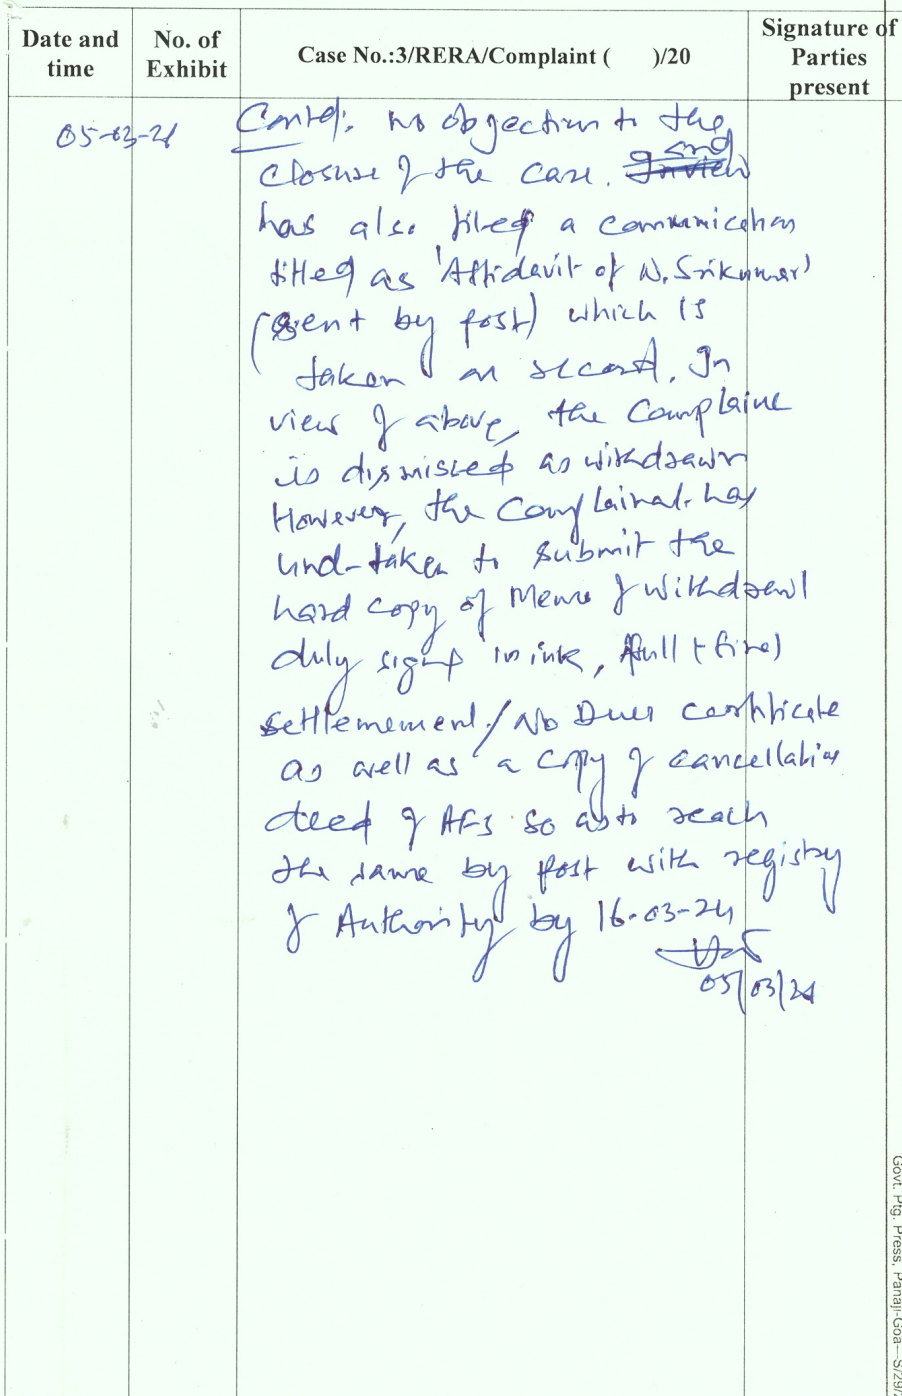 Date and time
No. of Exhibit
Case No.:3/RERA/Complaint ( )/20
Signature of Parties present
05-03-24
Contd: no objection to the
closure of the case. In view and
has also filed a communication
titled as 'Affidavit of N. Srikumar'
(sent by post) which is
taken on record. In
view of above, the Complaint
is dismissed as withdrawn
However, the Complainant has
und-taken to submit the
hard copy of Memo of withdrawl
duly signed in ink, full & final
settlemement/No Dues certificate
as well as a copy of cancellation
deed of AFS so as to reach
the same by post with registry
of Authority by 16-03-24
05/03/24
Govt. Ptg. Press, Panaji-Goa—